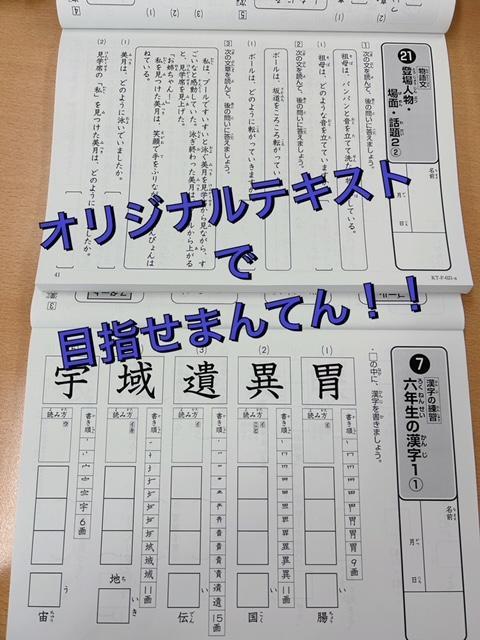 オリジナルテキスト
で
目指せまんてん！！
21
物語文
登場人物・
場面・話題2②
名前
月
日
1 次の文を読んで、後の問いに答えましょう。
(1)
祖母は、どのような音を立てています
2 次の文を読んで、後の問いに答えましょう。
(1)
ボールは、坂道をころころ転がってい
ボールは、どのように転がっていきま
3 次の文章を読んで、後の問いに答えましょう。
私は、プールですいすいと泳ぐ美月を見学席から見ながら、す
ごいなと感動していた。泳ぎ終わった美月
「お姉ちゃん！」
私を見つけた美月は、笑顔で手をふりな
ねている。
(1)
美月は、どのように泳いでいましたか。
(2)
見学席の「私」を見つけた美月は、どのように
41
KT-P-021-a
7
漢字の練習
六年生の漢字1①
ろくねんせい
かんじ
名前
月
日
●□の中に、漢字を書きましょう。
(1)
胃
書き順
9画
読み方
イ
腸
(2)
異
書き順
11画
読み方
イ
こと
国
(3)
遺
書き順
15画
読み方
イ
伝
域
書き順
11画
読み方
イキ
地
いき
宇
書き順
6画
読み方
ウ
う
宙